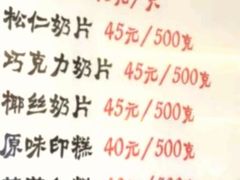 松仁奶片 45元/500克
巧克力奶片 45元/500克
椰丝奶片 45元/500克
原味印糕 40元/500克